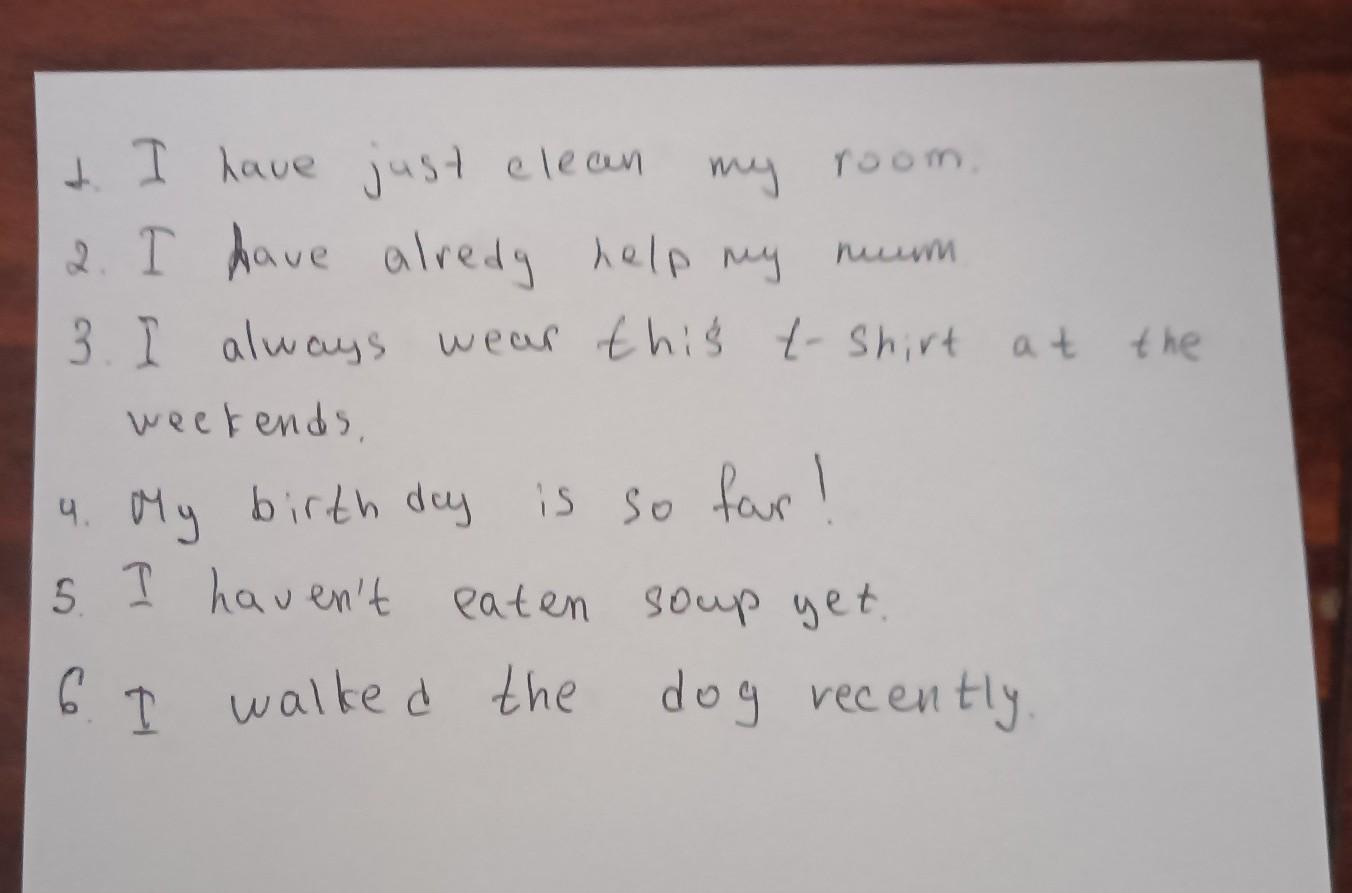 1. I have just clean my room.
2. I have alredy help my mum
3. I always wear this t-shirt at the
weekends.
4. My birthday is so far!
5. I haven't eaten soup yet.
6. I walked the dog recently.